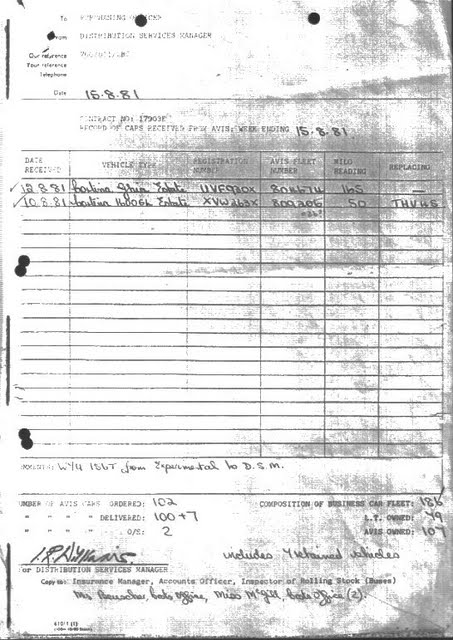 To PURCHASING OFFICER
From DISTRIBUTION SERVICES MANAGER
Our reference
Your reference
Telephone
Date 15.8.81
CONTRACT NO: 17903E
RECORD OF CARS RECEIVED FROM AVIS: WEEK ENDING 15.8.81.
DATE RECEIVED VEHICLE TYPE REGISTRATION NUMBER AVIS FLEET NUMBER MILO READING REPLACING
12.8.81 Cortina Ghia Estate 165 —
10.8.81 Cortina 1600GL Estate XVW263X 809206 50
COMMENTS: from Experimental to D.S.M.
NUMBER OF AVIS CARS ORDERED: 102 COMPOSITION OF BUSINESS CAR FLEET: 186
" " " " DELIVERED: 100+7 L.T. OWNED: 79
" " " " O/S: 2 AVIS OWNED: 107
includes 7 retained vehicles
for DISTRIBUTION SERVICES MANAGER
Copy to: Insurance Manager, Accounts Officer, Inspector of Rolling Stock (Buses)
Office, Miss McGill, Office (2).